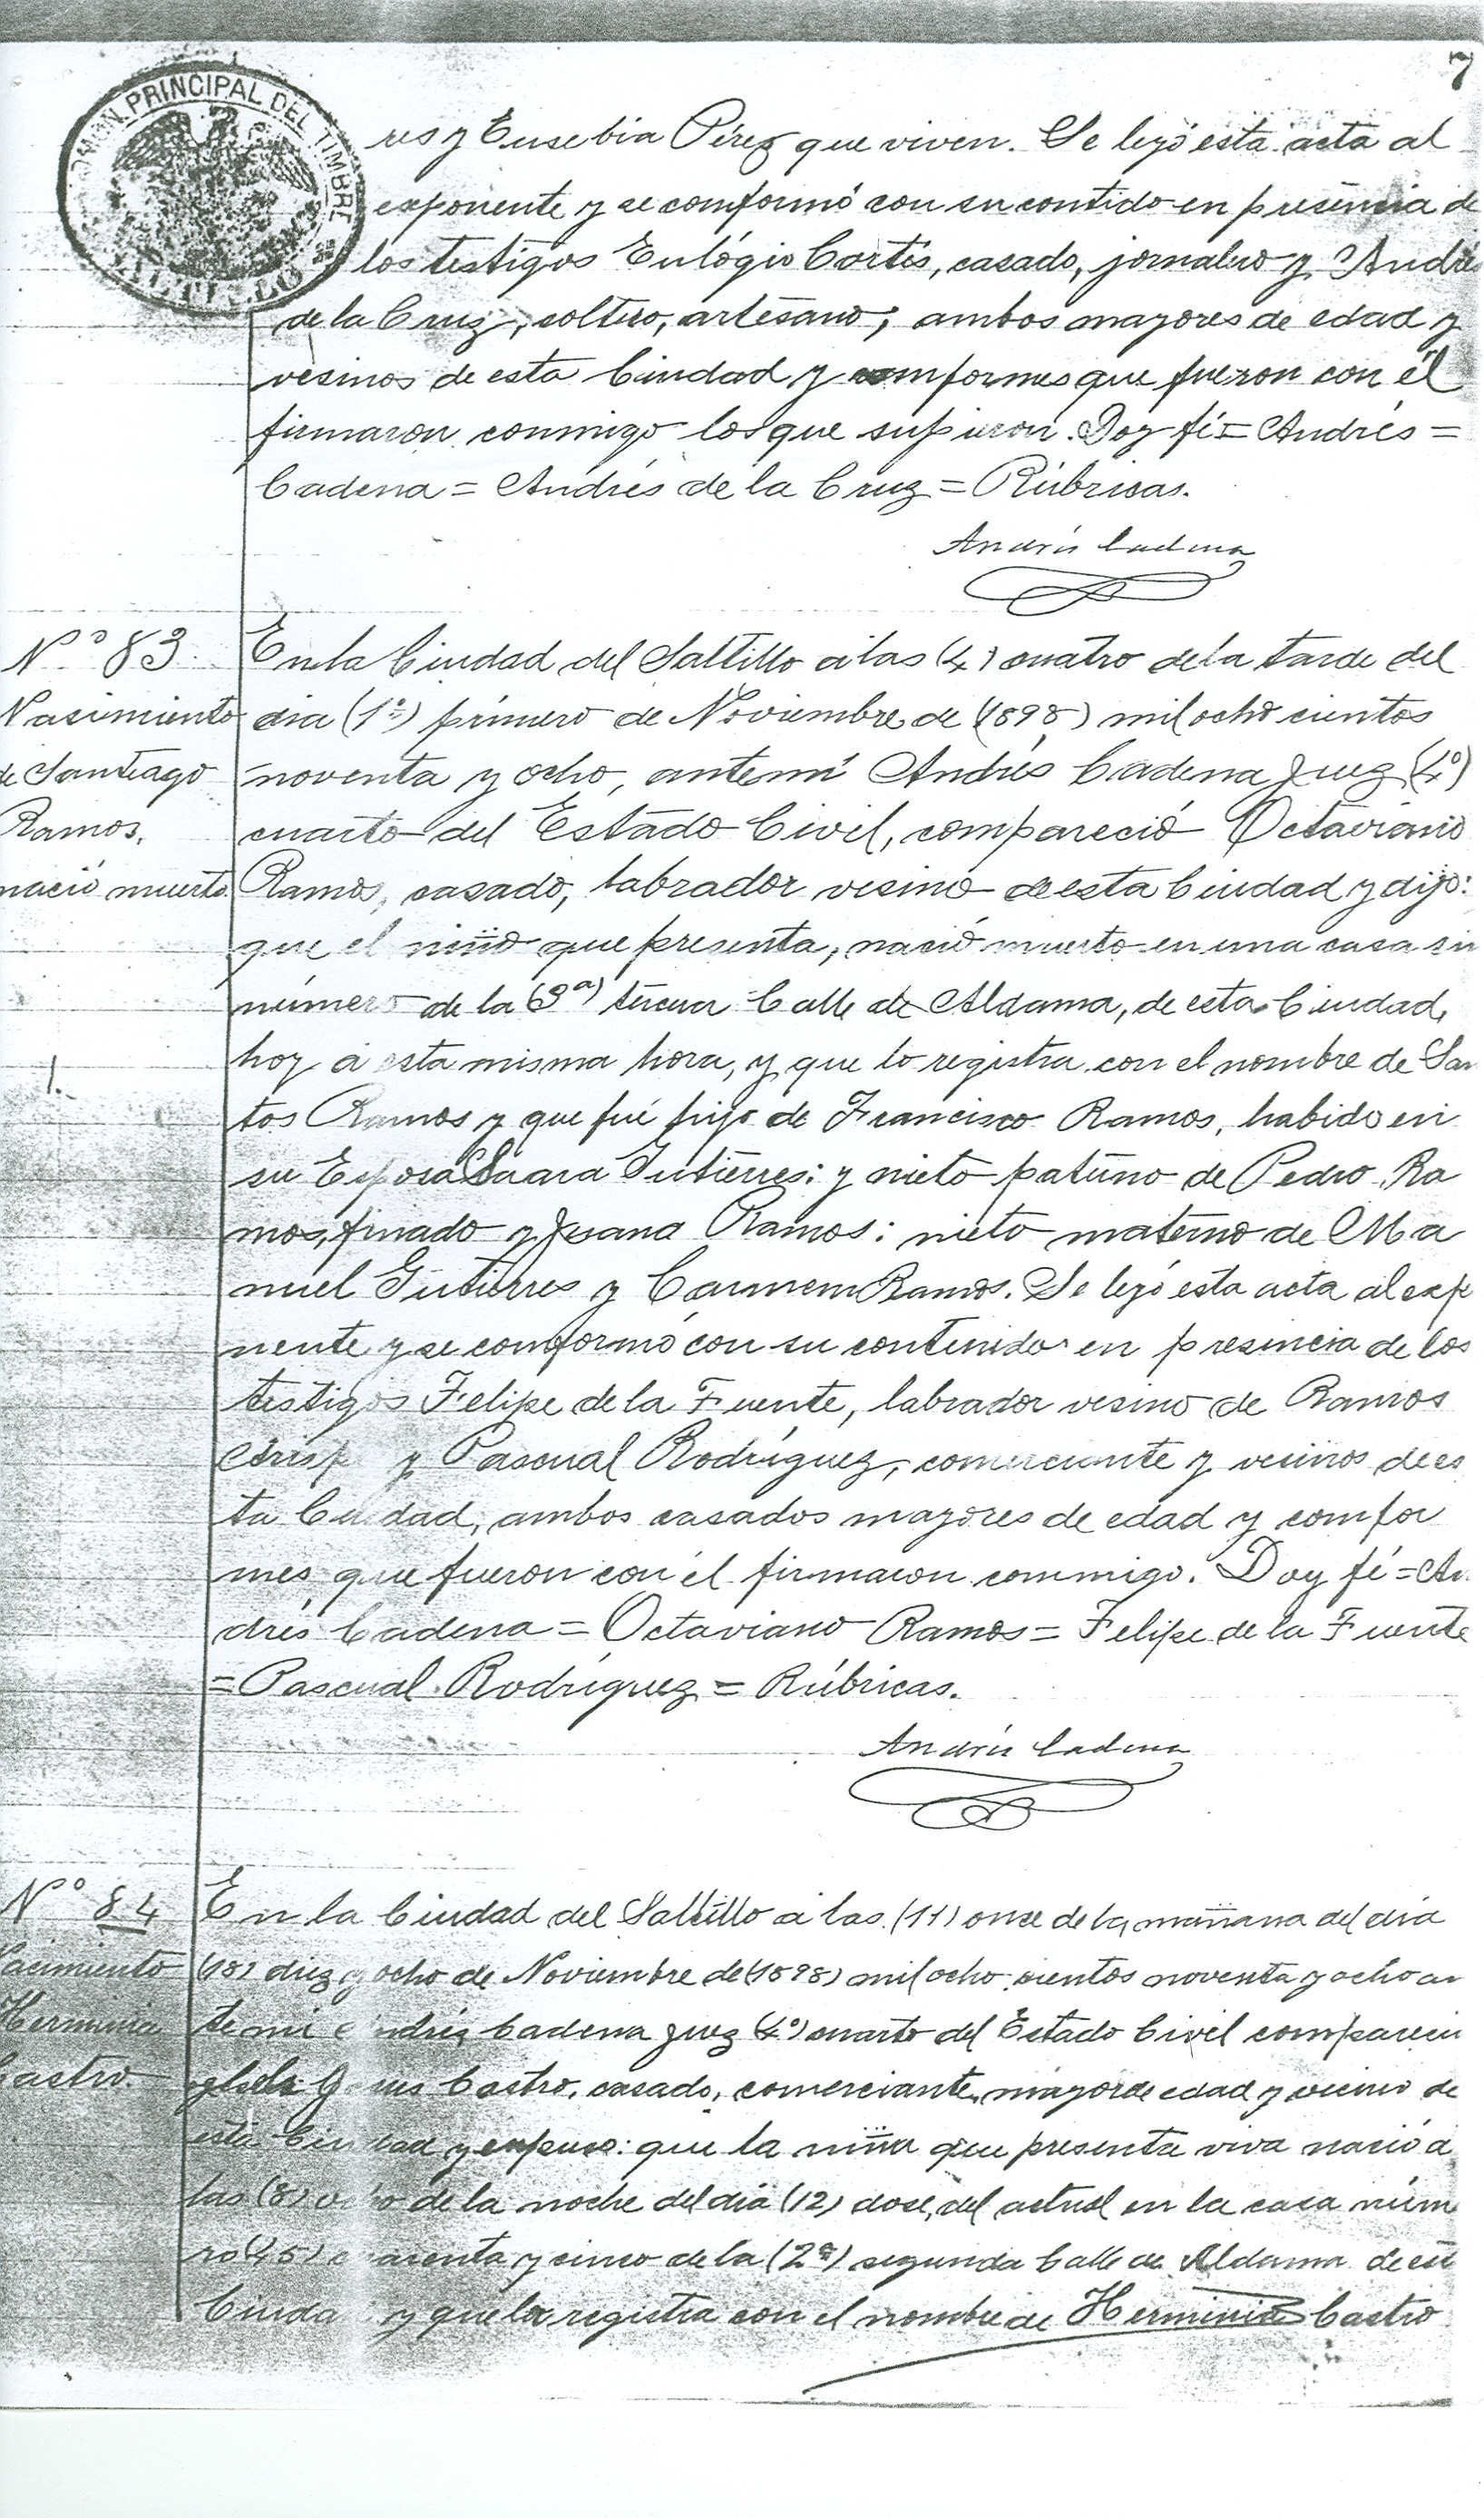 7
PRINCIPAL DEL TIMBRE
SALTILLO
res y Eusebia Pérez que viven. Se leyó esta acta al
exponente y se comformó con su contido en presencia de
los testigos Eulógio Cortés, casado, jornalero y Andrés
de la Cruz, soltero, artesano, ambos mayores de edad y
vesinos de esta Ciudad y comformes que fueron con él
firmaron conmigo los que supieron. Doy fé = Andrés =
Cadena = Andrés de la Cruz = Rúbricas.
Andrés Cadena
N.° 83
Nasimiento
de Santiago
Ramos.
nació muerto.
En la Ciudad del Saltillo á las (4) cuatro de la tarde del
dia (1°) primero de Noviembre de (1898) mil ocho cientos
noventa y ocho, ante mi Andrés Cadena Juez (4°)
cuarto del Estado Civil, compareció Octaviano
Ramos, casado, labrador vesino de esta Ciudad y dijo:
que el niño que presenta, nació muerto en una casa sin
número de la (3ª) tercer Calle de Aldama, de esta Ciudad,
hoy á esta misma hora, y que lo registra con el nombre de San
tos Ramos y que fué hijo de Francisco Ramos, habido en
su Esposa Saara Gutierres: y nieto paterno de Pedro Ra
mos, finado y Juana Ramos: nieto materno de Ma
nuel Gutierres y Carmen Ramos. Se leyó esta acta al expo
nente y se comformó con su contenido en presencia de los
testigos Felipe de la Fuente, labrador vesino de Ramos
Arispe y Pascual Rodríguez, comerciante y vesinos de es
ta Ciudad, ambos casados mayores de edad y comfor
mes que fueron con él firmaron commigo. Doy fé = An
drés Cadena = Octaviano Ramos = Felipe de la Fuente
= Pascual Rodríguez = Rúbricas.
Andrés Cadena
N° 84
Nacimiento
Herminia
Castro.
En la Ciudad del Saltillo á las (11) once de la mañana del dia
(18) diez y ocho de Noviembre de (1898) mil ocho cientos noventa y ocho an
te mi Andrés Cadena Juez (4°) cuarto del Estado Civil comparecio
Castro, casado, comerciante, mayor de edad y vecino de
esta Ciudad y expuso: que la niña que presenta viva nació a
las (8) ocho de la noche del dia (12) dose, del actual en la casa núme
ro (45) cuarenta y cinco de la (2ª) segunda Calle de Aldama de esta
Ciudad y que la registra con el nombre de Herminia Castro